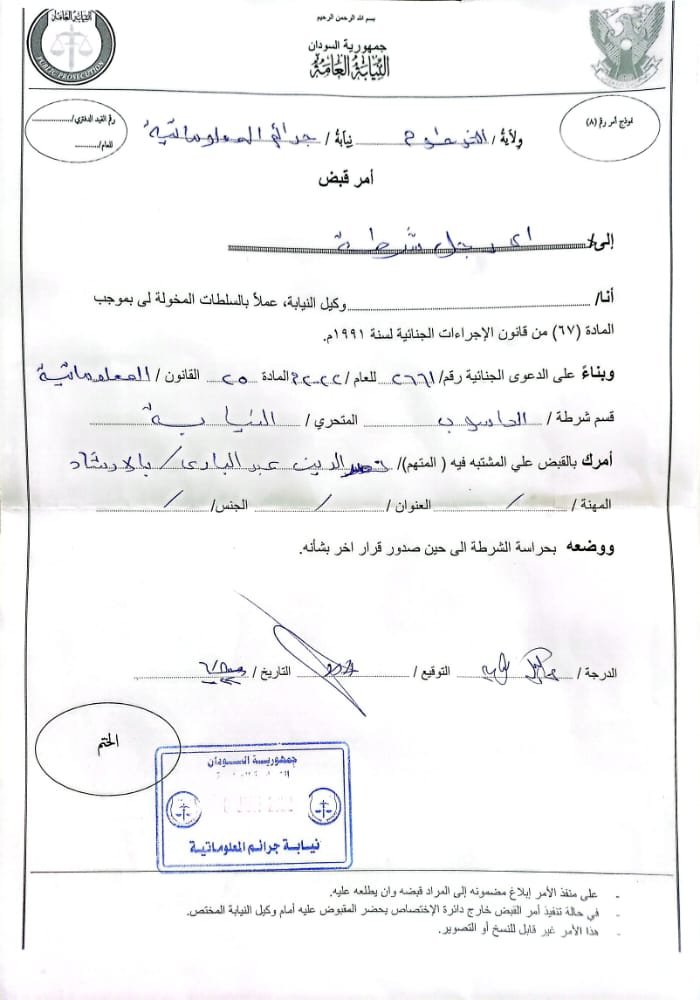 بسم الله الرحمن الرحيم
جمهورية السودان
النيابة العامة
النيابة العامة
PUBLIC PROSECUTION
نموذج أمر رقم (٨)
رقم القيد الدفتري/
للعام/
ولاية / الخرطوم نيابة / جرائم المعلوماتية
أمر قبض
إلى/ اى رجل شرطة
أنا/ وكيل النيابة، عملاً بالسلطات المخولة لى بموجب
المادة (٦٧) من قانون الإجراءات الجنائية لسنة ١٩٩١م.
وبناءً على الدعوى الجنائية رقم/ ٢٦٦١ للعام /٢٠٢٢ المادة ٢٥ القانون / المعلوماتية
قسم شرطة / الحاسوب المتحري / النيابة
أمرك بالقبض علي المشتبه فيه ( المتهم)/ الدين عبد البارى / بالارشاد
المهنة / / العنوان / / الجنس/ /
ووضعه بحراسة الشرطة الى حين صدور قرار اخر بشأنه.
الدرجة / وكيل نيابة التوقيع / التاريخ /
الختم
جمهورية السودان
نيابة جرائم المعلوماتية
- على منفذ الأمر إبلاغ مضمونه إلى المراد قبضه وان يطلعه عليه.
- في حالة تنفيذ أمر القبض خارج دائرة الإختصاص يحضر المقبوض عليه أمام وكيل النيابة المختص.
- هذا الأمر غير قابل للنسخ أو التصوير.